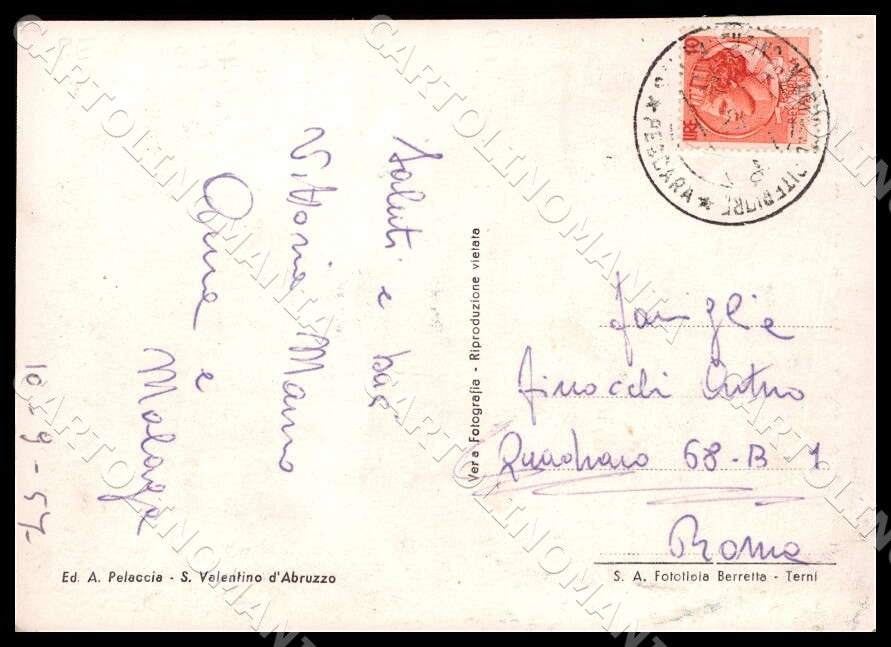 Saluti e baci
Vittoria Manno
e
10-9-57
Vera Fotografia - Riproduzione vietata
LIRE 10
★ PESCARA ★
CITERIORE
Famiglia
Finocchi
Quadraro 68-B-1
Roma
Ed. A. Pelaccia - S. Valentino d'Abruzzo
S. A. Fototipia Berretta - Terni
CARTOLINOMANIA